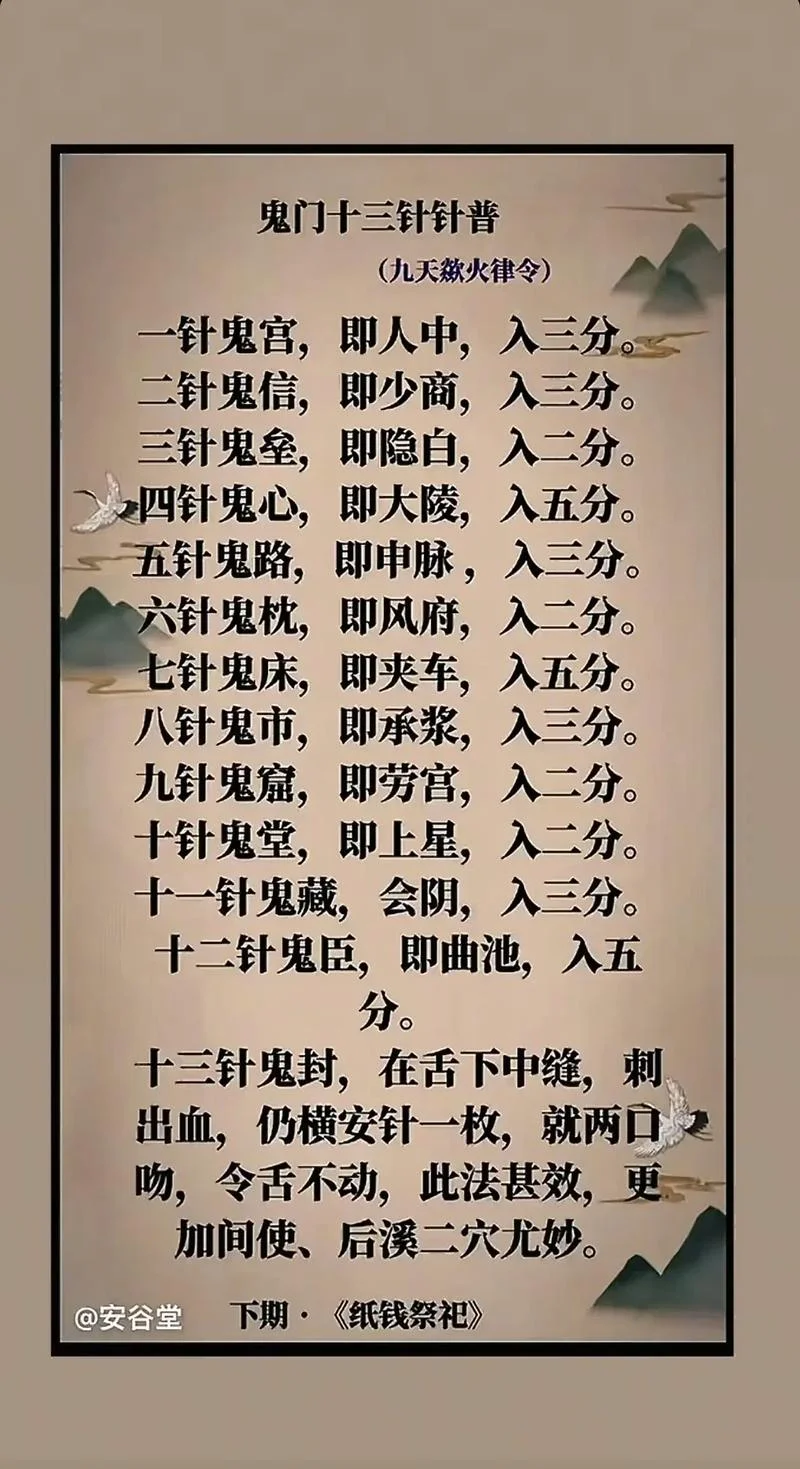 鬼门十三针针普
（九天歘火律令）
一针鬼宫，即人中，入三分。
二针鬼信，即少商，入三分。
三针鬼垒，即隐白，入二分。
四针鬼心，即大陵，入五分。
五针鬼路，即申脉，入三分。
六针鬼枕，即风府，入二分。
七针鬼床，即夹车，入五分。
八针鬼市，即承浆，入三分。
九针鬼窟，即劳宫，入二分。
十针鬼堂，即上星，入二分。
十一针鬼藏，会阴，入三分。
十二针鬼臣，即曲池，入五
分。
十三针鬼封，在舌下中缝，刺
出血，仍横安针一枚，就两口
吻，令舌不动，此法甚效，更
加间使、后溪二穴尤妙。
@安谷堂 下期·《纸钱祭祀》